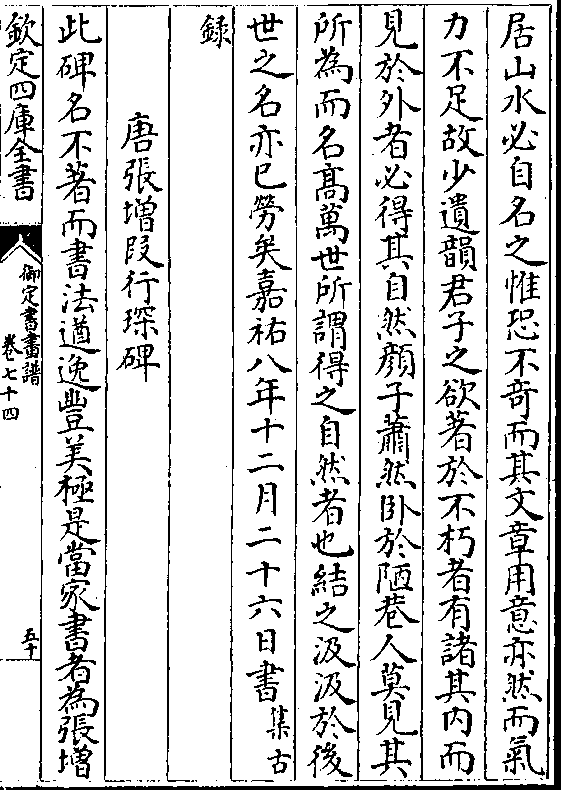 居山水必自名之惟恐不竒而其文章用意亦然而氣
力不足故少遺韻君子之欲著於不朽者有諸其内而
見於外者必得其自然顔子蕭然卧於陋巷人莫見其
所為而名髙萬世所謂得之自然者也結之汲汲於後
世之名亦已勞矣嘉祐八年十二月二十六日書集古
録
唐張增叚行琛碑
此碑名不著而書法遒逸豐美極是當家書者為張增
欽定四庫全書
御定書畫譜
卷七十四
五十